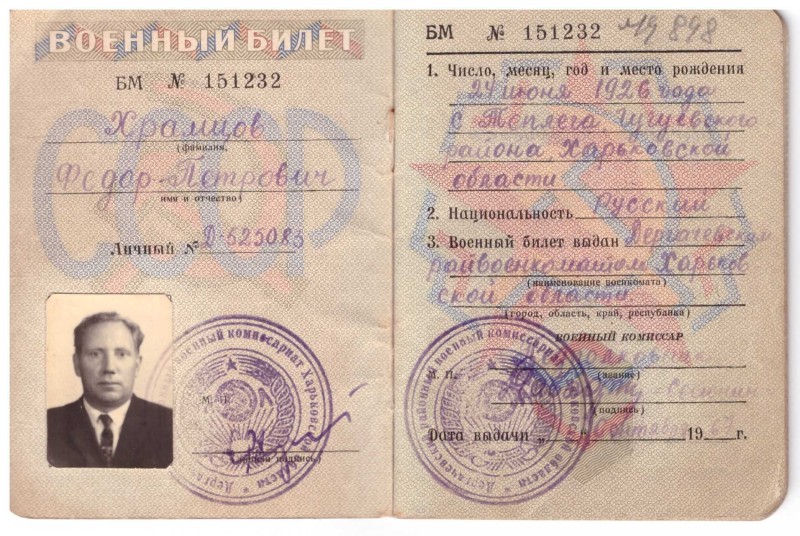 ВОЕННЫЙ БИЛЕТ
БМ № 151232
Храмцов
(фамилия,
Федор Петрович
имя и отчество)
Личный № Д-525083
М. П.
(личная подпись)
БМ № 151232 898
1. Число, месяц, год и место рождения
24 июня 1926 года
с Теплега, Чугуевского
района, Харьковской
области
2. Национальность Русский
3. Военный билет выдан Дергачевским
райвоенкоматом Харьков
ской области
(наименование военкомата)
(город, область, край, республика)
ВОЕННЫЙ КОМИССАР
М. П.
(звание)
(подпись)
Дата выдачи „ “ 19 г.